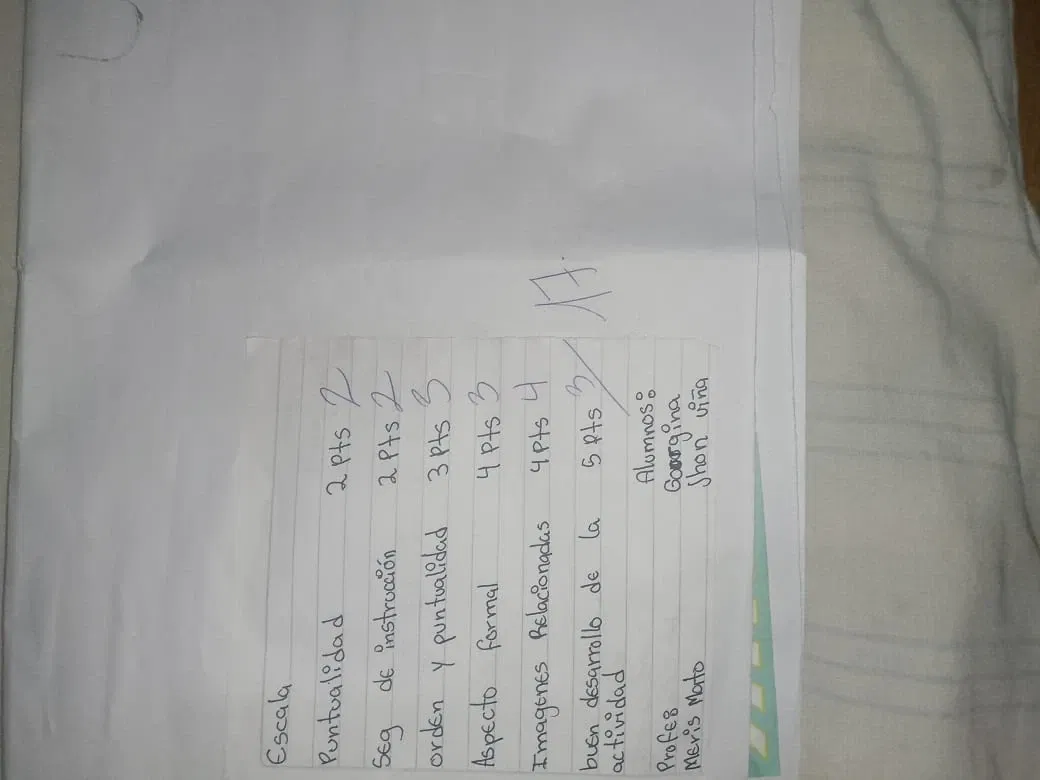 Escala
Puntualidad 2 Pts 2
Seg de instrucción 2 Pts 2
orden y puntualidad 3 Pts 3
Aspecto formal 4 Pts 3
Imagenes Relacionadas 4 Pts 4
buen desarrollo de la 5 Pts 3
actividad
17.
Profe:
Meris Mato
Alumnos:
Georgina
Jhon Viña